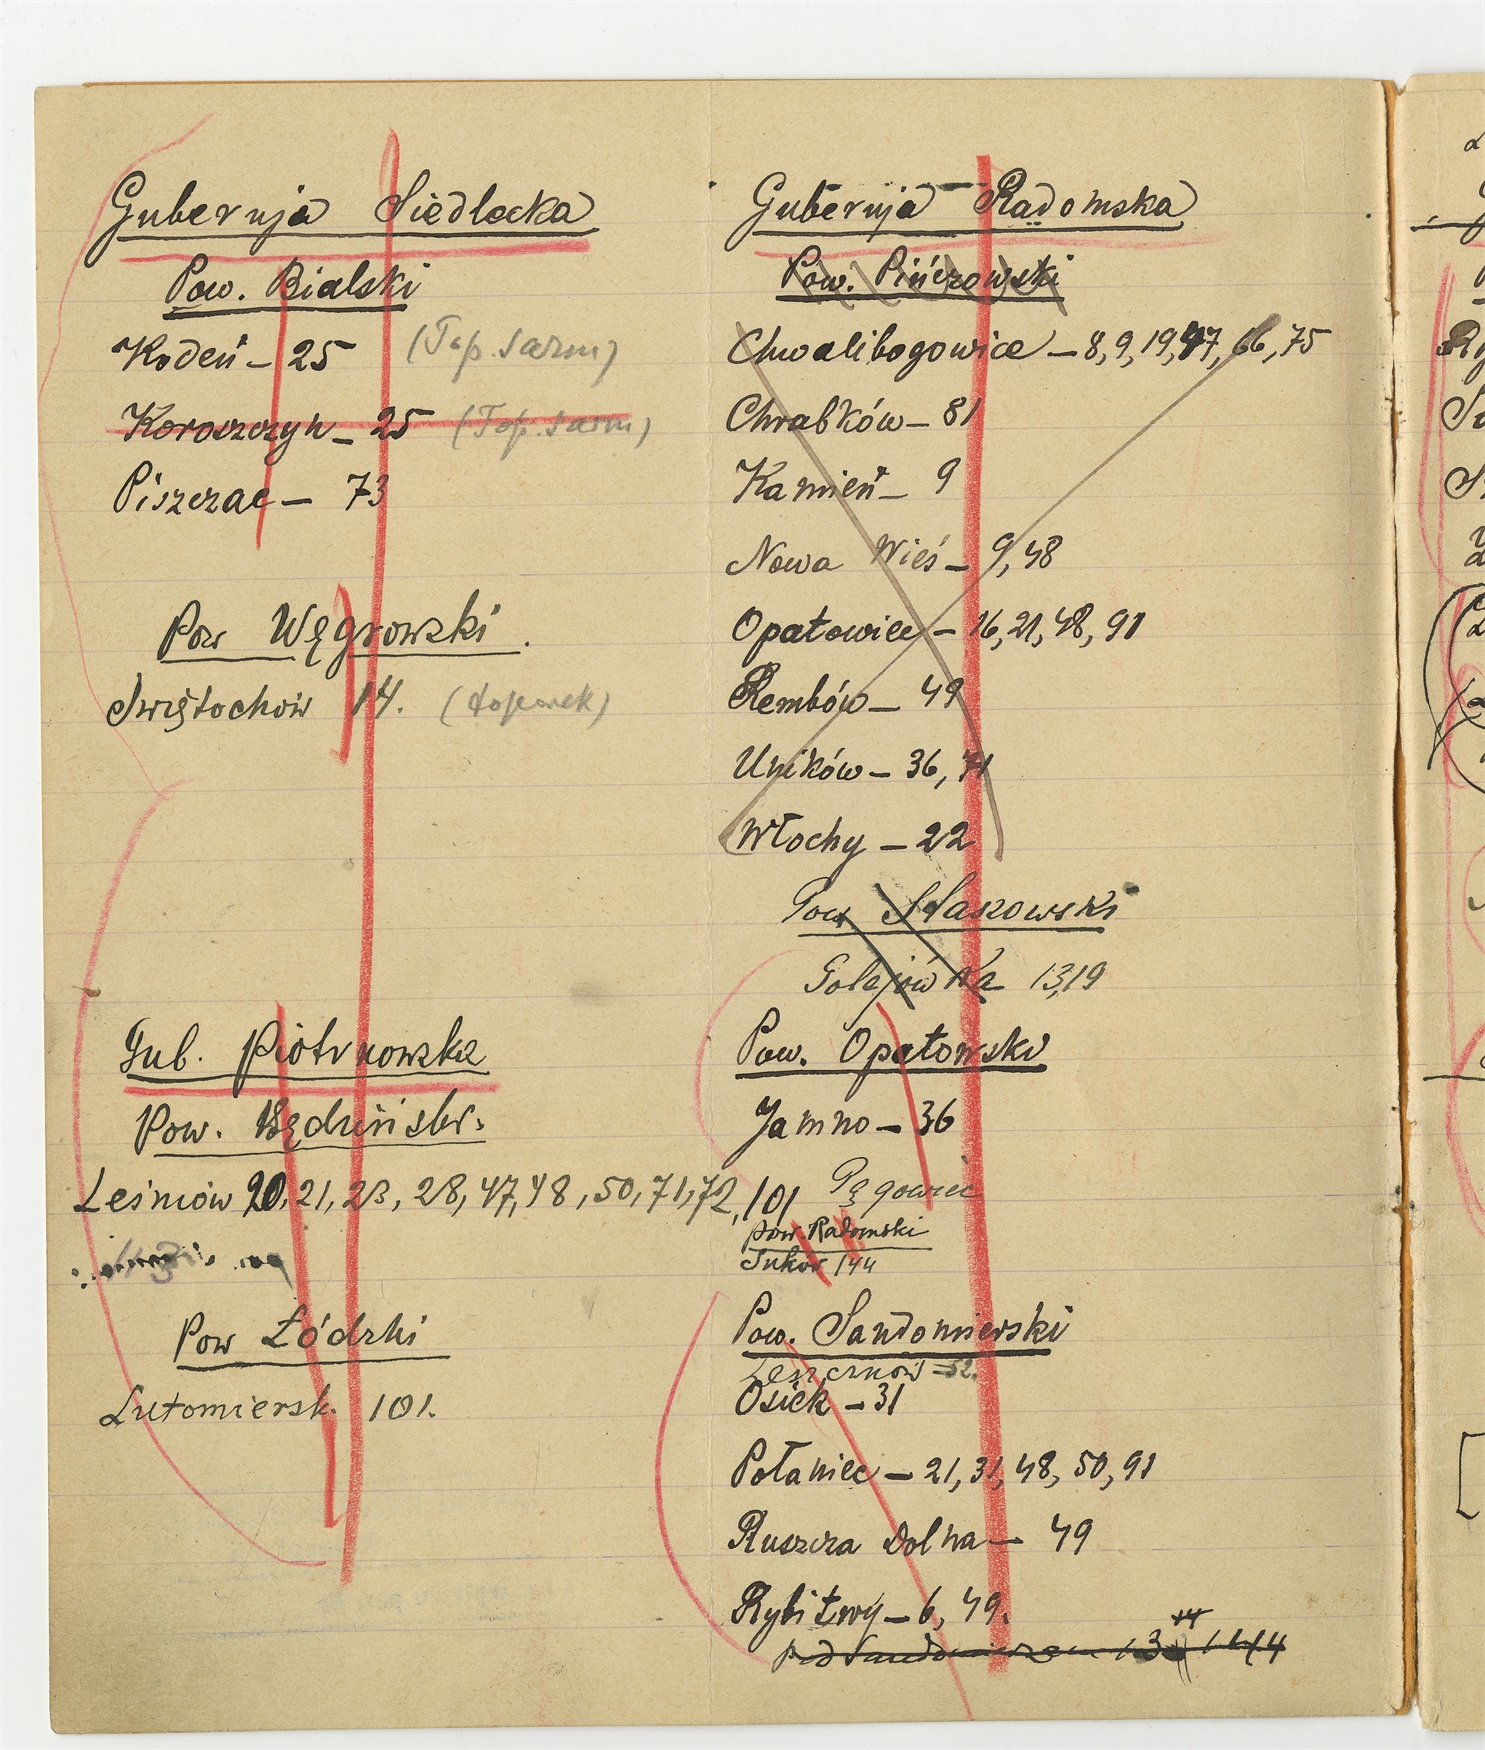 Gubernja Siedlecka
Pow. Bialski
Kodeń – 25 (Top. Sarm)
Koroszczyn – 25 (Top. Sarm)
Piszczac – 73
Pow Węgrowski.
Świętochów 14.
Gub. Piotrkowska
Pow. Będziński.
Leśniów 20, 21, 23, 28, 47, 48, 50, 71, 72, 101
Pow Łódzki
Lutomiersk. 101.
Gubernja Radomska
Pow. Pińczowski
Chwalibogowice – 8, 9, 19, 47, 66, 75
Chrabków – 81
Kamień – 9
Nowa Wieś – 9, 48
Opatowiec – 16, 21, 48, 91
Rembów – 49
Uników – 36, 71
Włochy – 22
Pow Staszowski
Golejówka 13,19
Pow. Opatowski
Jamno – 36
Pęgowiec
pow. Radomski
Suków 144
Pow. Sandomierski
Leszczków – 52.
Osiek – 31
Połaniec – 21, 31, 48, 50, 91
Ruszcza Dolna – 49
Rybitwy – 6, 49.